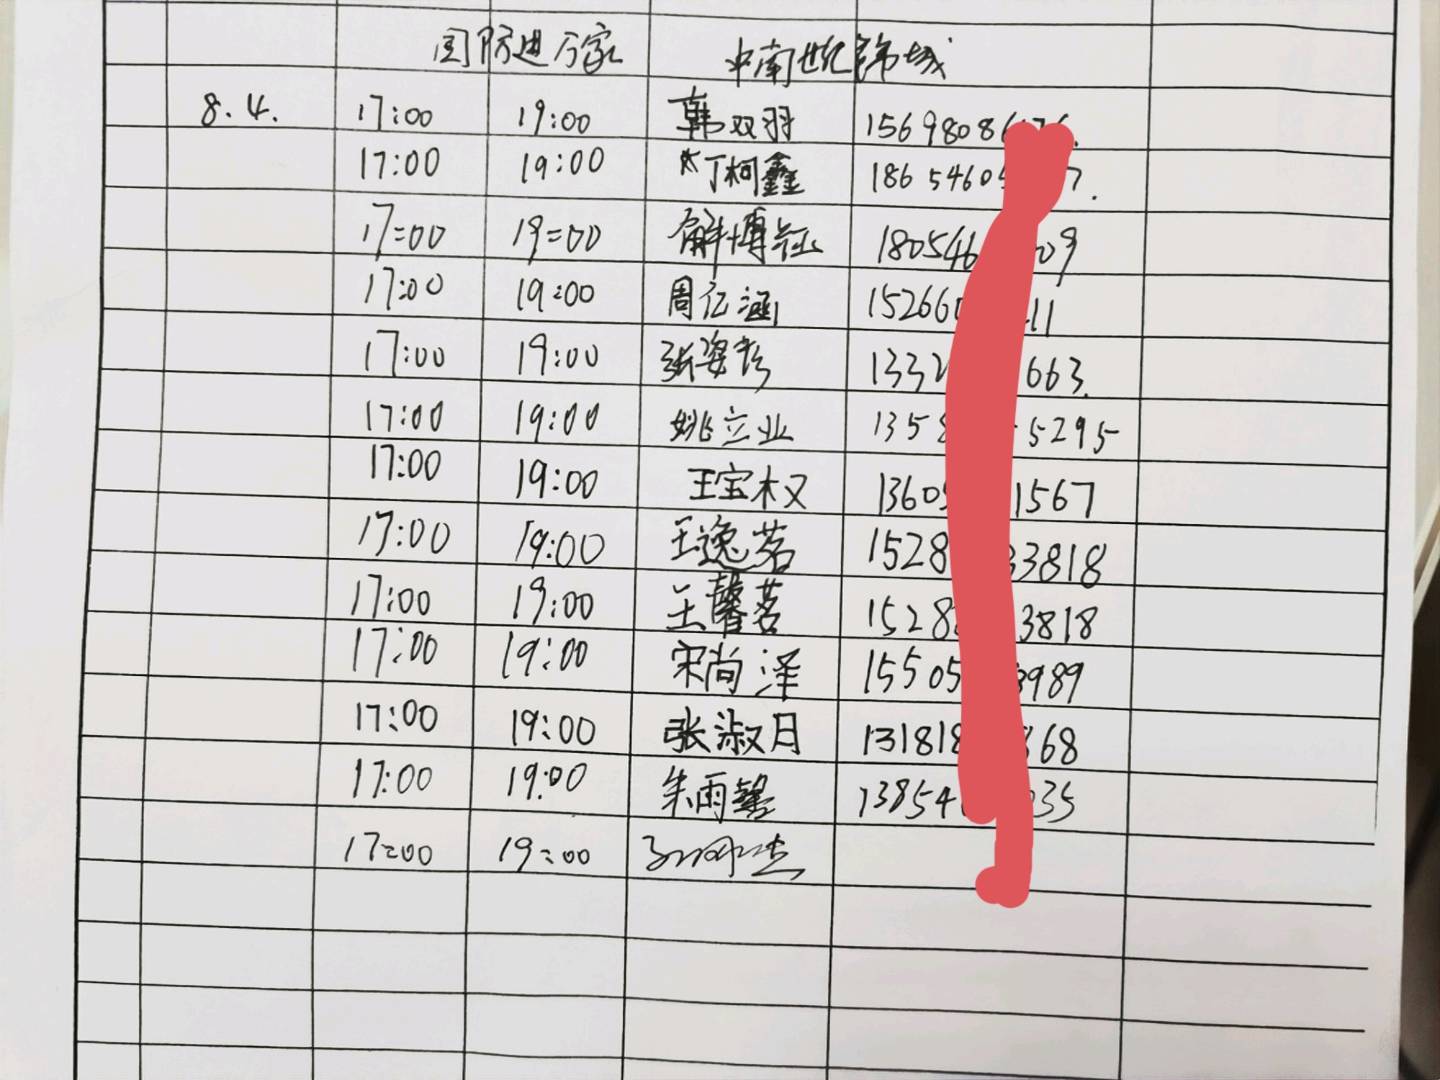 国防进万家 中南世纪锦城
8.4. 17:00 19:00 韩双羽 15698086
17:00 19:00 丁柯鑫 1865460 7.
17:00 19:00 解博钰 180546 09
17:00 19:00 周亿涵 15266 11
17:00 19:00 张姿 133 663.
17:00 19:00 姚立业 1358 5295
17:00 19:00 王宝权 1360 1567
17:00 19:00 王逸茗 1528 33818
17:00 19:00 王馨茗 1528 3818
17:00 19:00 宋尚泽 15505 3989
17:00 19:00 张淑月 131818 868
17:00 19:00 朱雨馨 13854 035
17:00 19:00